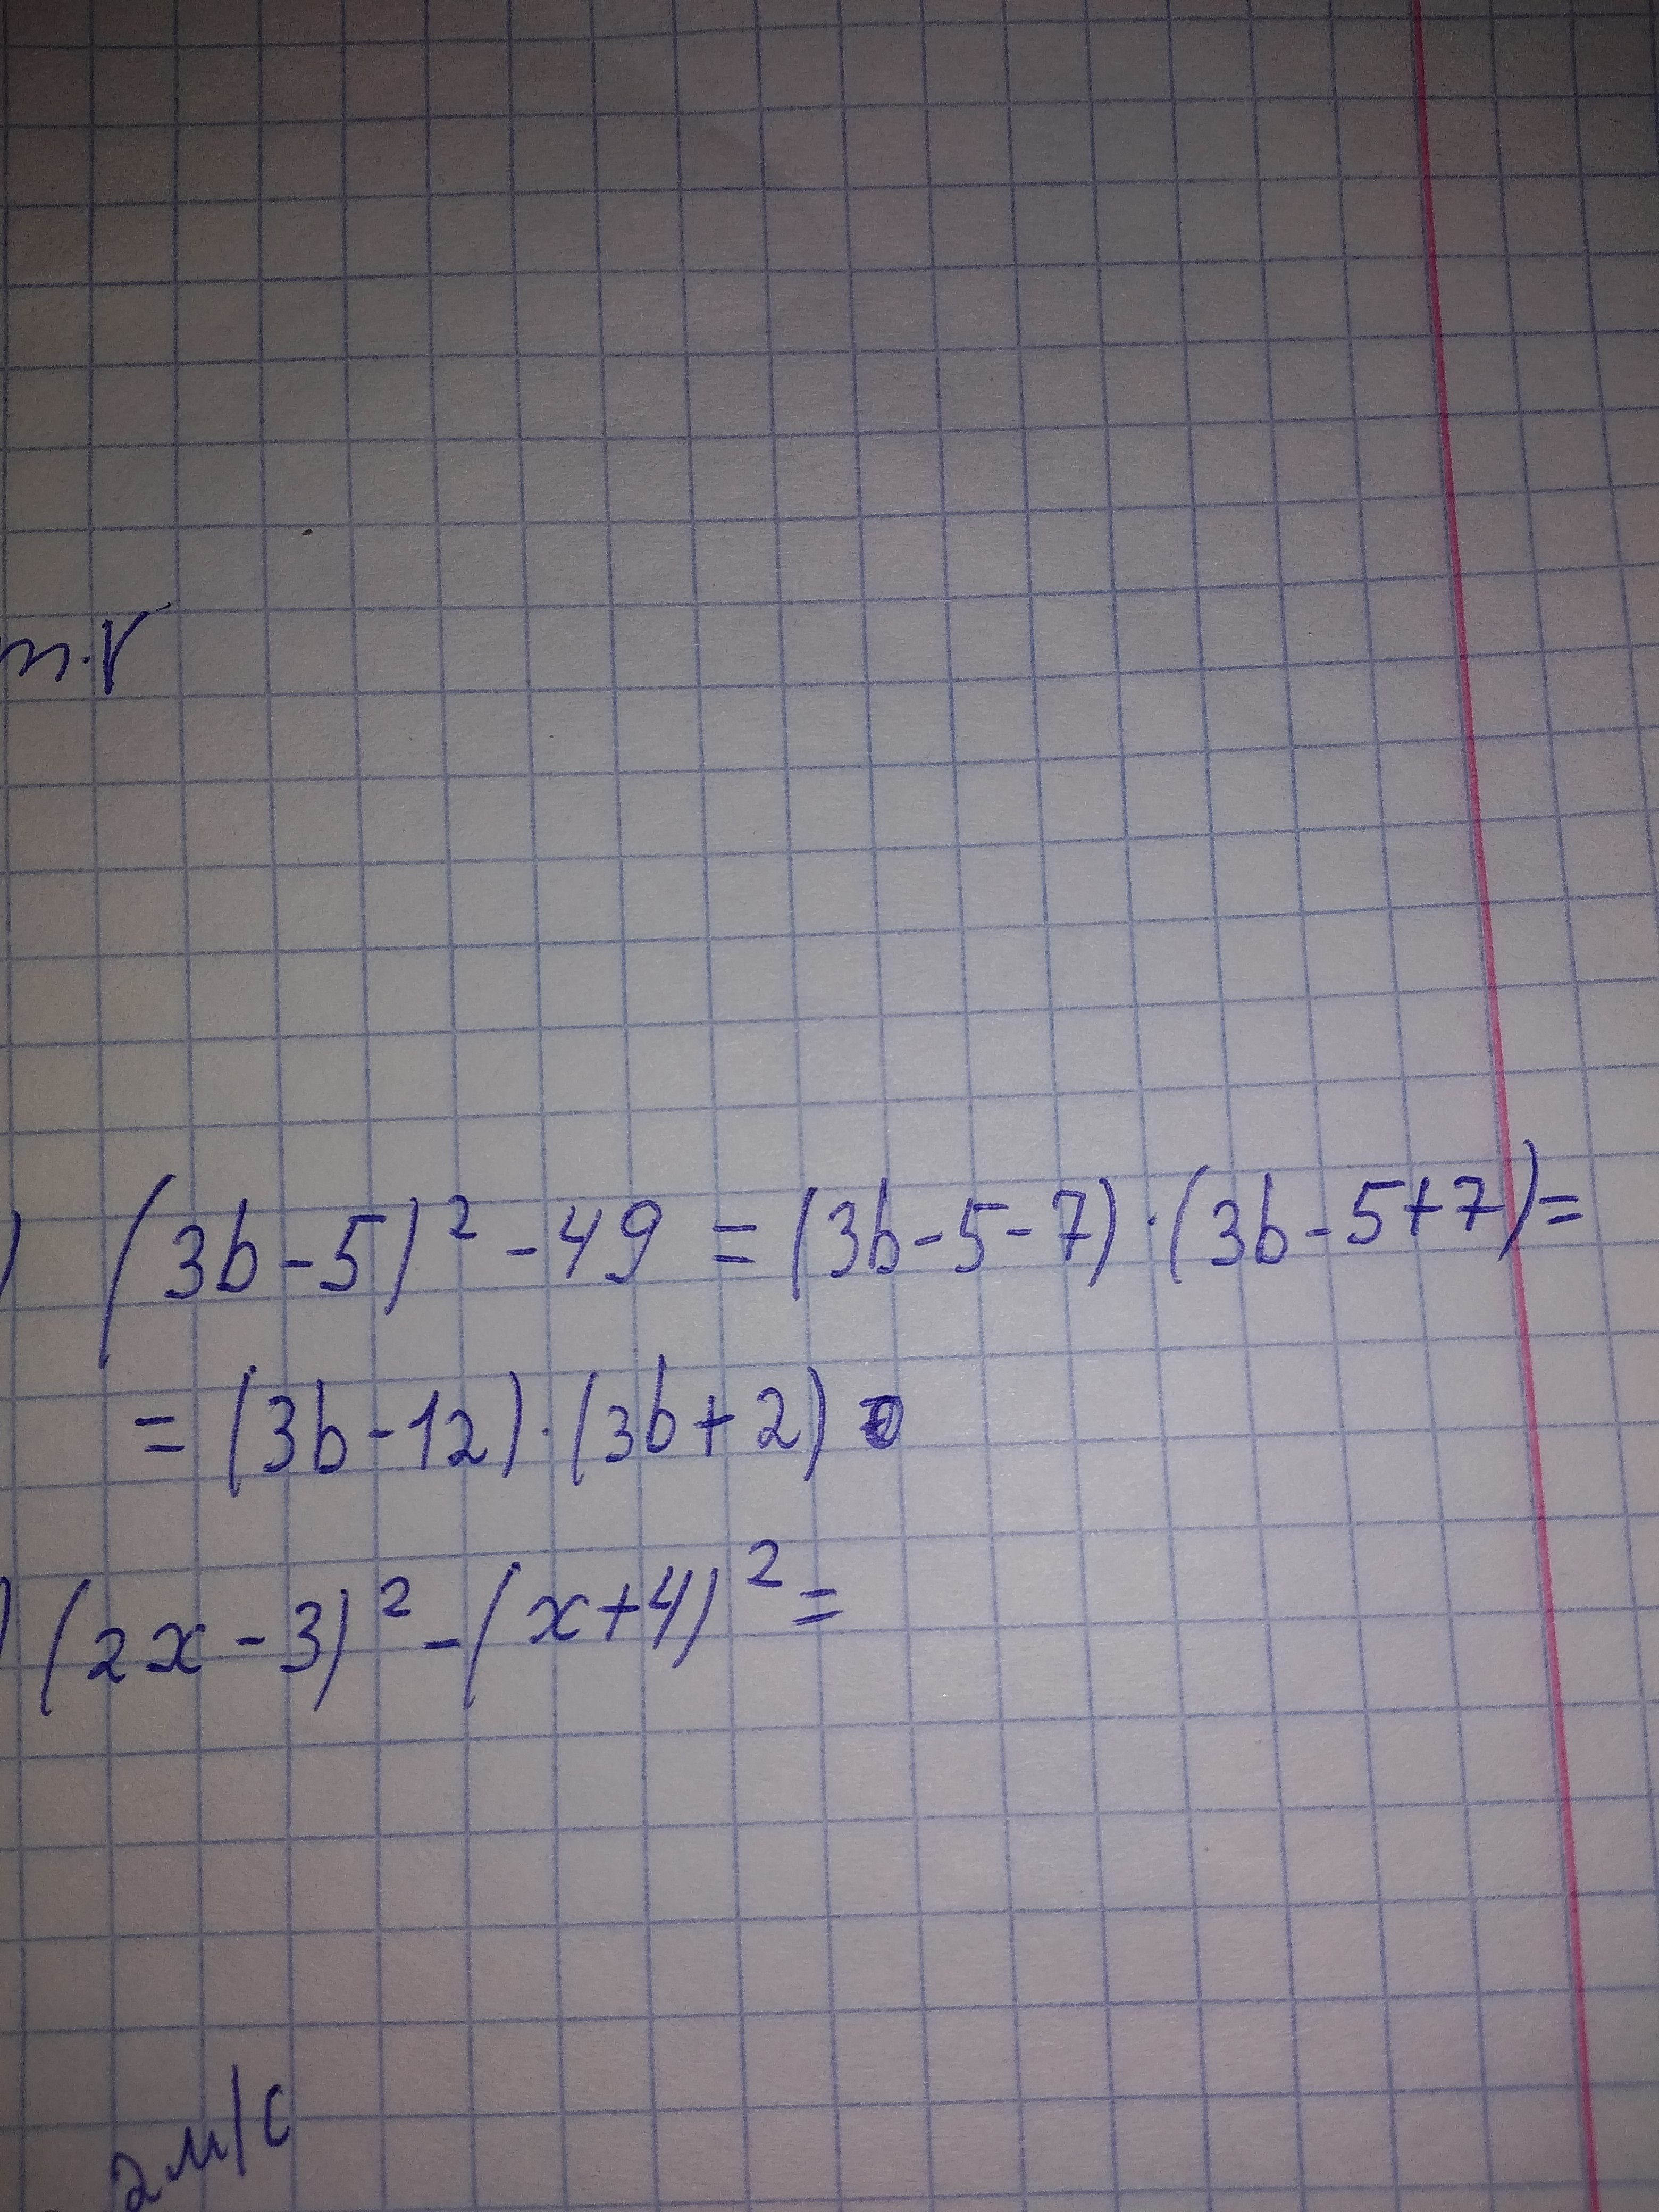 m·V
) (3b-5)² -49 = (3b-5-7)·(3b-5+7)=
= (3b-12)·(3b+2)
) (2x-3)² -(x+4)² =
2м/с